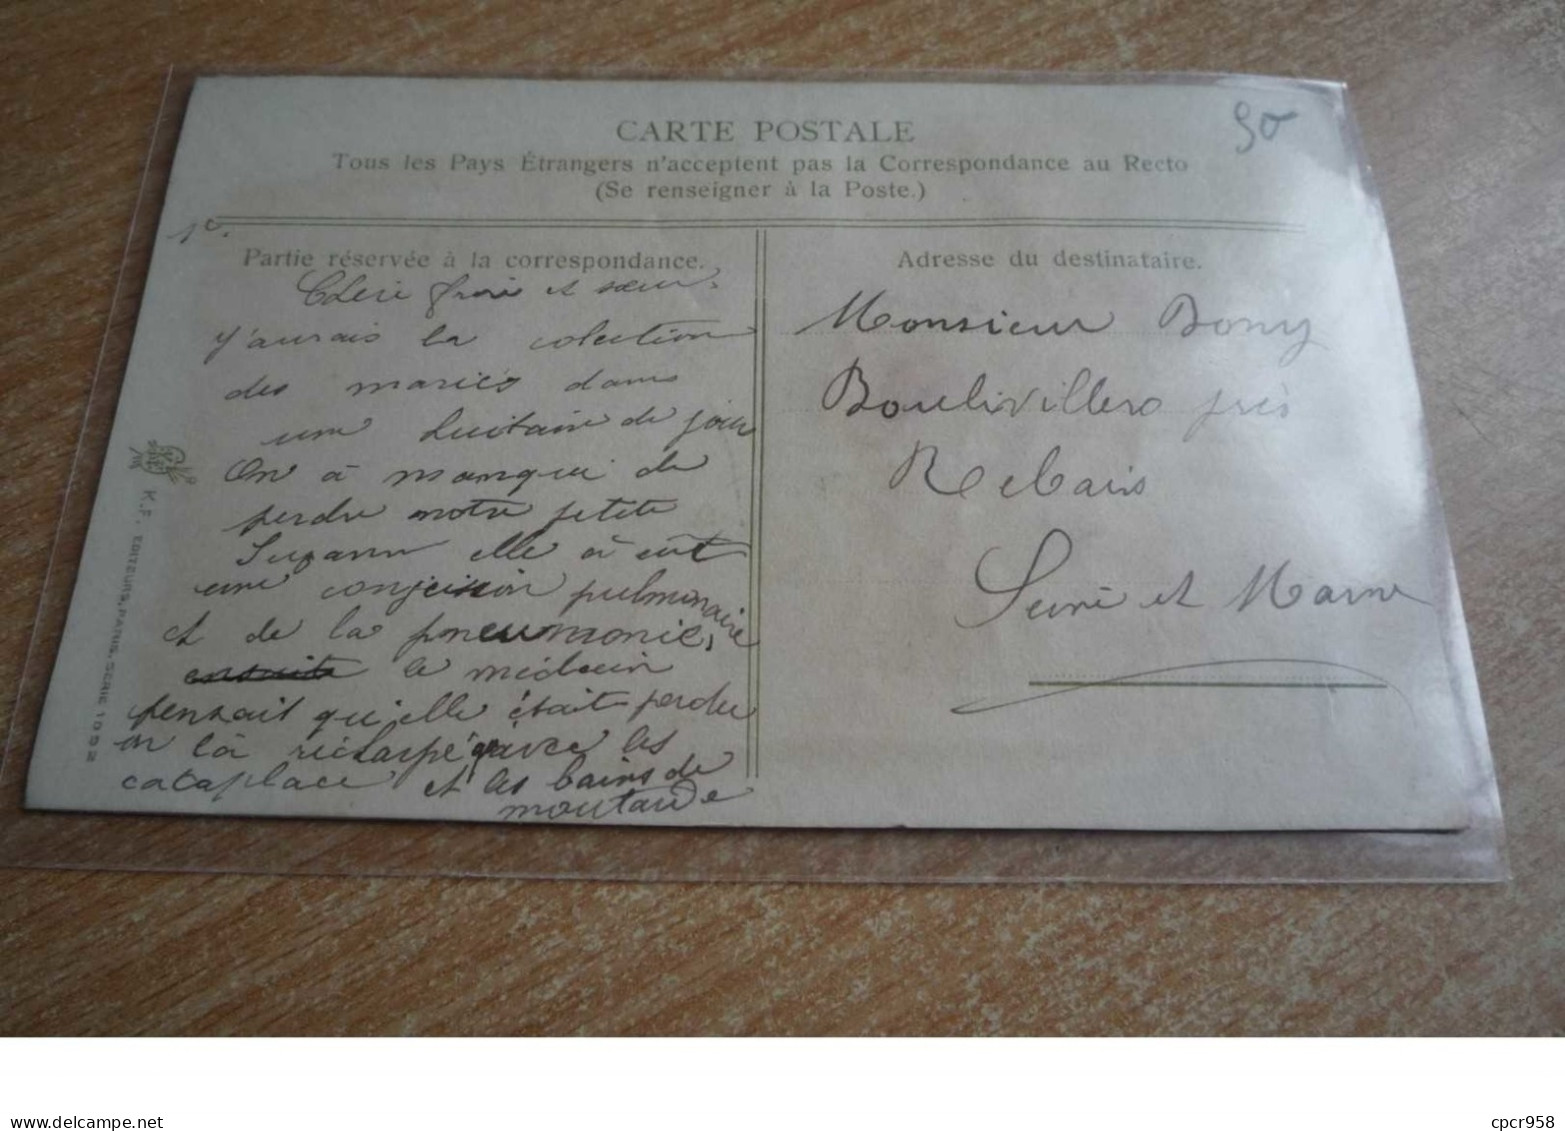 CARTE POSTALE
Tous les Pays Étrangers n'acceptent pas la Correspondance au Recto
(Se renseigner à la Poste.)
90
1º.
Partie réservée à la correspondance.
Chère frère et sœur.
J'aurais la colection
des mariés dans
une huitaine de jour
On à manqué de
perdre notre petite
Suzanne elle à eut
une conjestion pulmonaire
et de la pneumonie,
ensuite le médecin
pensait qu'elle était perdu
on là réchappé avec les
cataplace et les bains de
moutarde
Adresse du destinataire.
Monsieur Bony
Boulivillers près
Rebais
Seine et Marne
K.F. EDITEURS, PARIS, SERIE 1932
www.delcampe.net
cpcr958